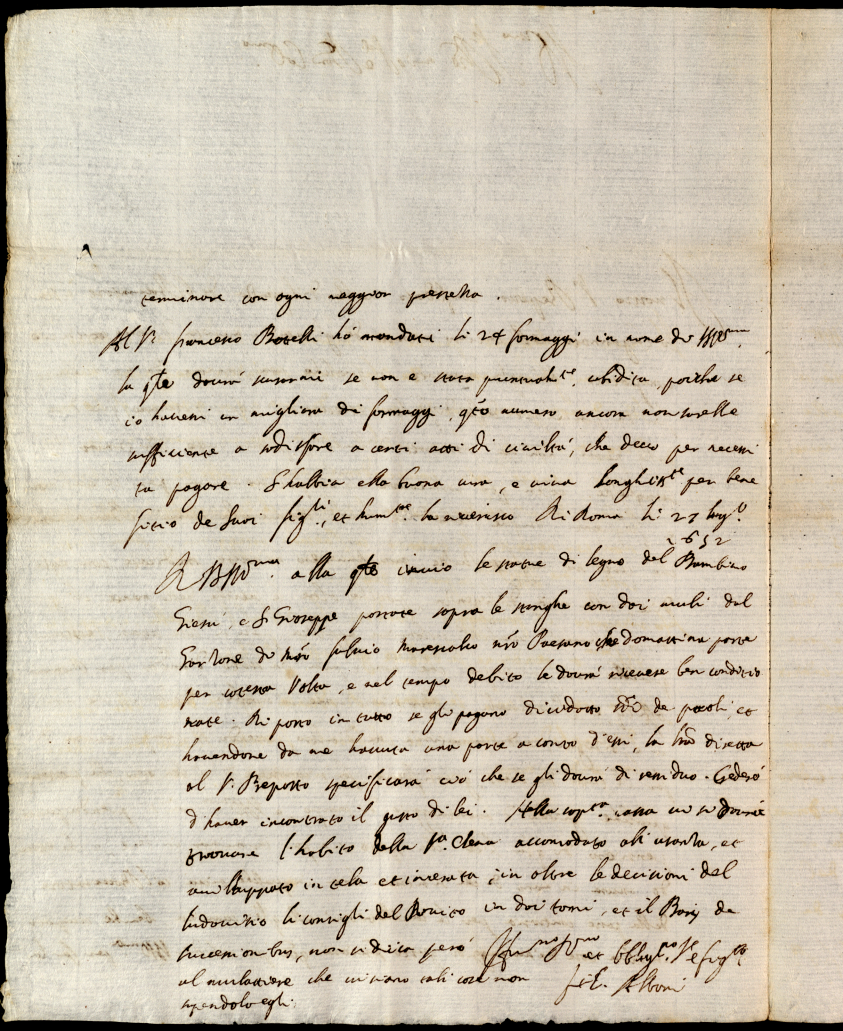 terminare con ogni maggior prestezza.
Al Sr. francesco Boselli hò mandati li 24 formaggi in nome di VSIllma.
la qte dourà scusarmi se non è stata puntualmte. ubidita, poiche se
io hauessi un migliaro di formaggi, qto numero ancora non sarebbe
sufficiente a sodisfare a certi atti di ciuiltà, che deuo per necessi
ta pagare. S'habbia ella buona cura, e uiua longhisste. per bene
fitio de suoi figli, et humte. la riuerisco Di Roma li 27 lugo.
1652
A VSIllma. alla qte inuio le statue di legno del Bambino
Giesù, e S Gioseppe portate sopra le stanghe con doi muli dal
Garzone di mro fuluio Marescalco nro Paesano che domattina parte
per cotesta Volta, e nel tempo debito le dourà riceuere ben conditio
nate. Di porto in tutto se gli pagano dicidotto di de paoli, et
hauendone da me hauuta una parte a conto d'essi, la lra diretta
al Sr. Preposto specificarà ciò che se gli dourà di residuo. Crederò
d'hauer incontrato il gusto di lei. Nella sopta. cassa ui si dourà
trouare l'habito della Sra. Clena accomodato all'usanza, et
auiluppato in tela et incerata, in oltre le decisioni del
ludouisio li consigli del in doi tomi, et il de
successionibus, non si dica però
al mulattiere che ui siano tali cose non
sapendolo egli.
et obbligmo
Alboni